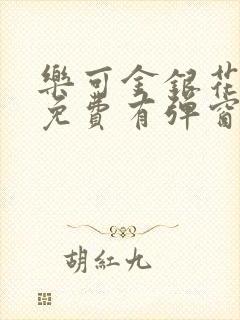 樂可金銀花
免費有彈窗
胡紅九